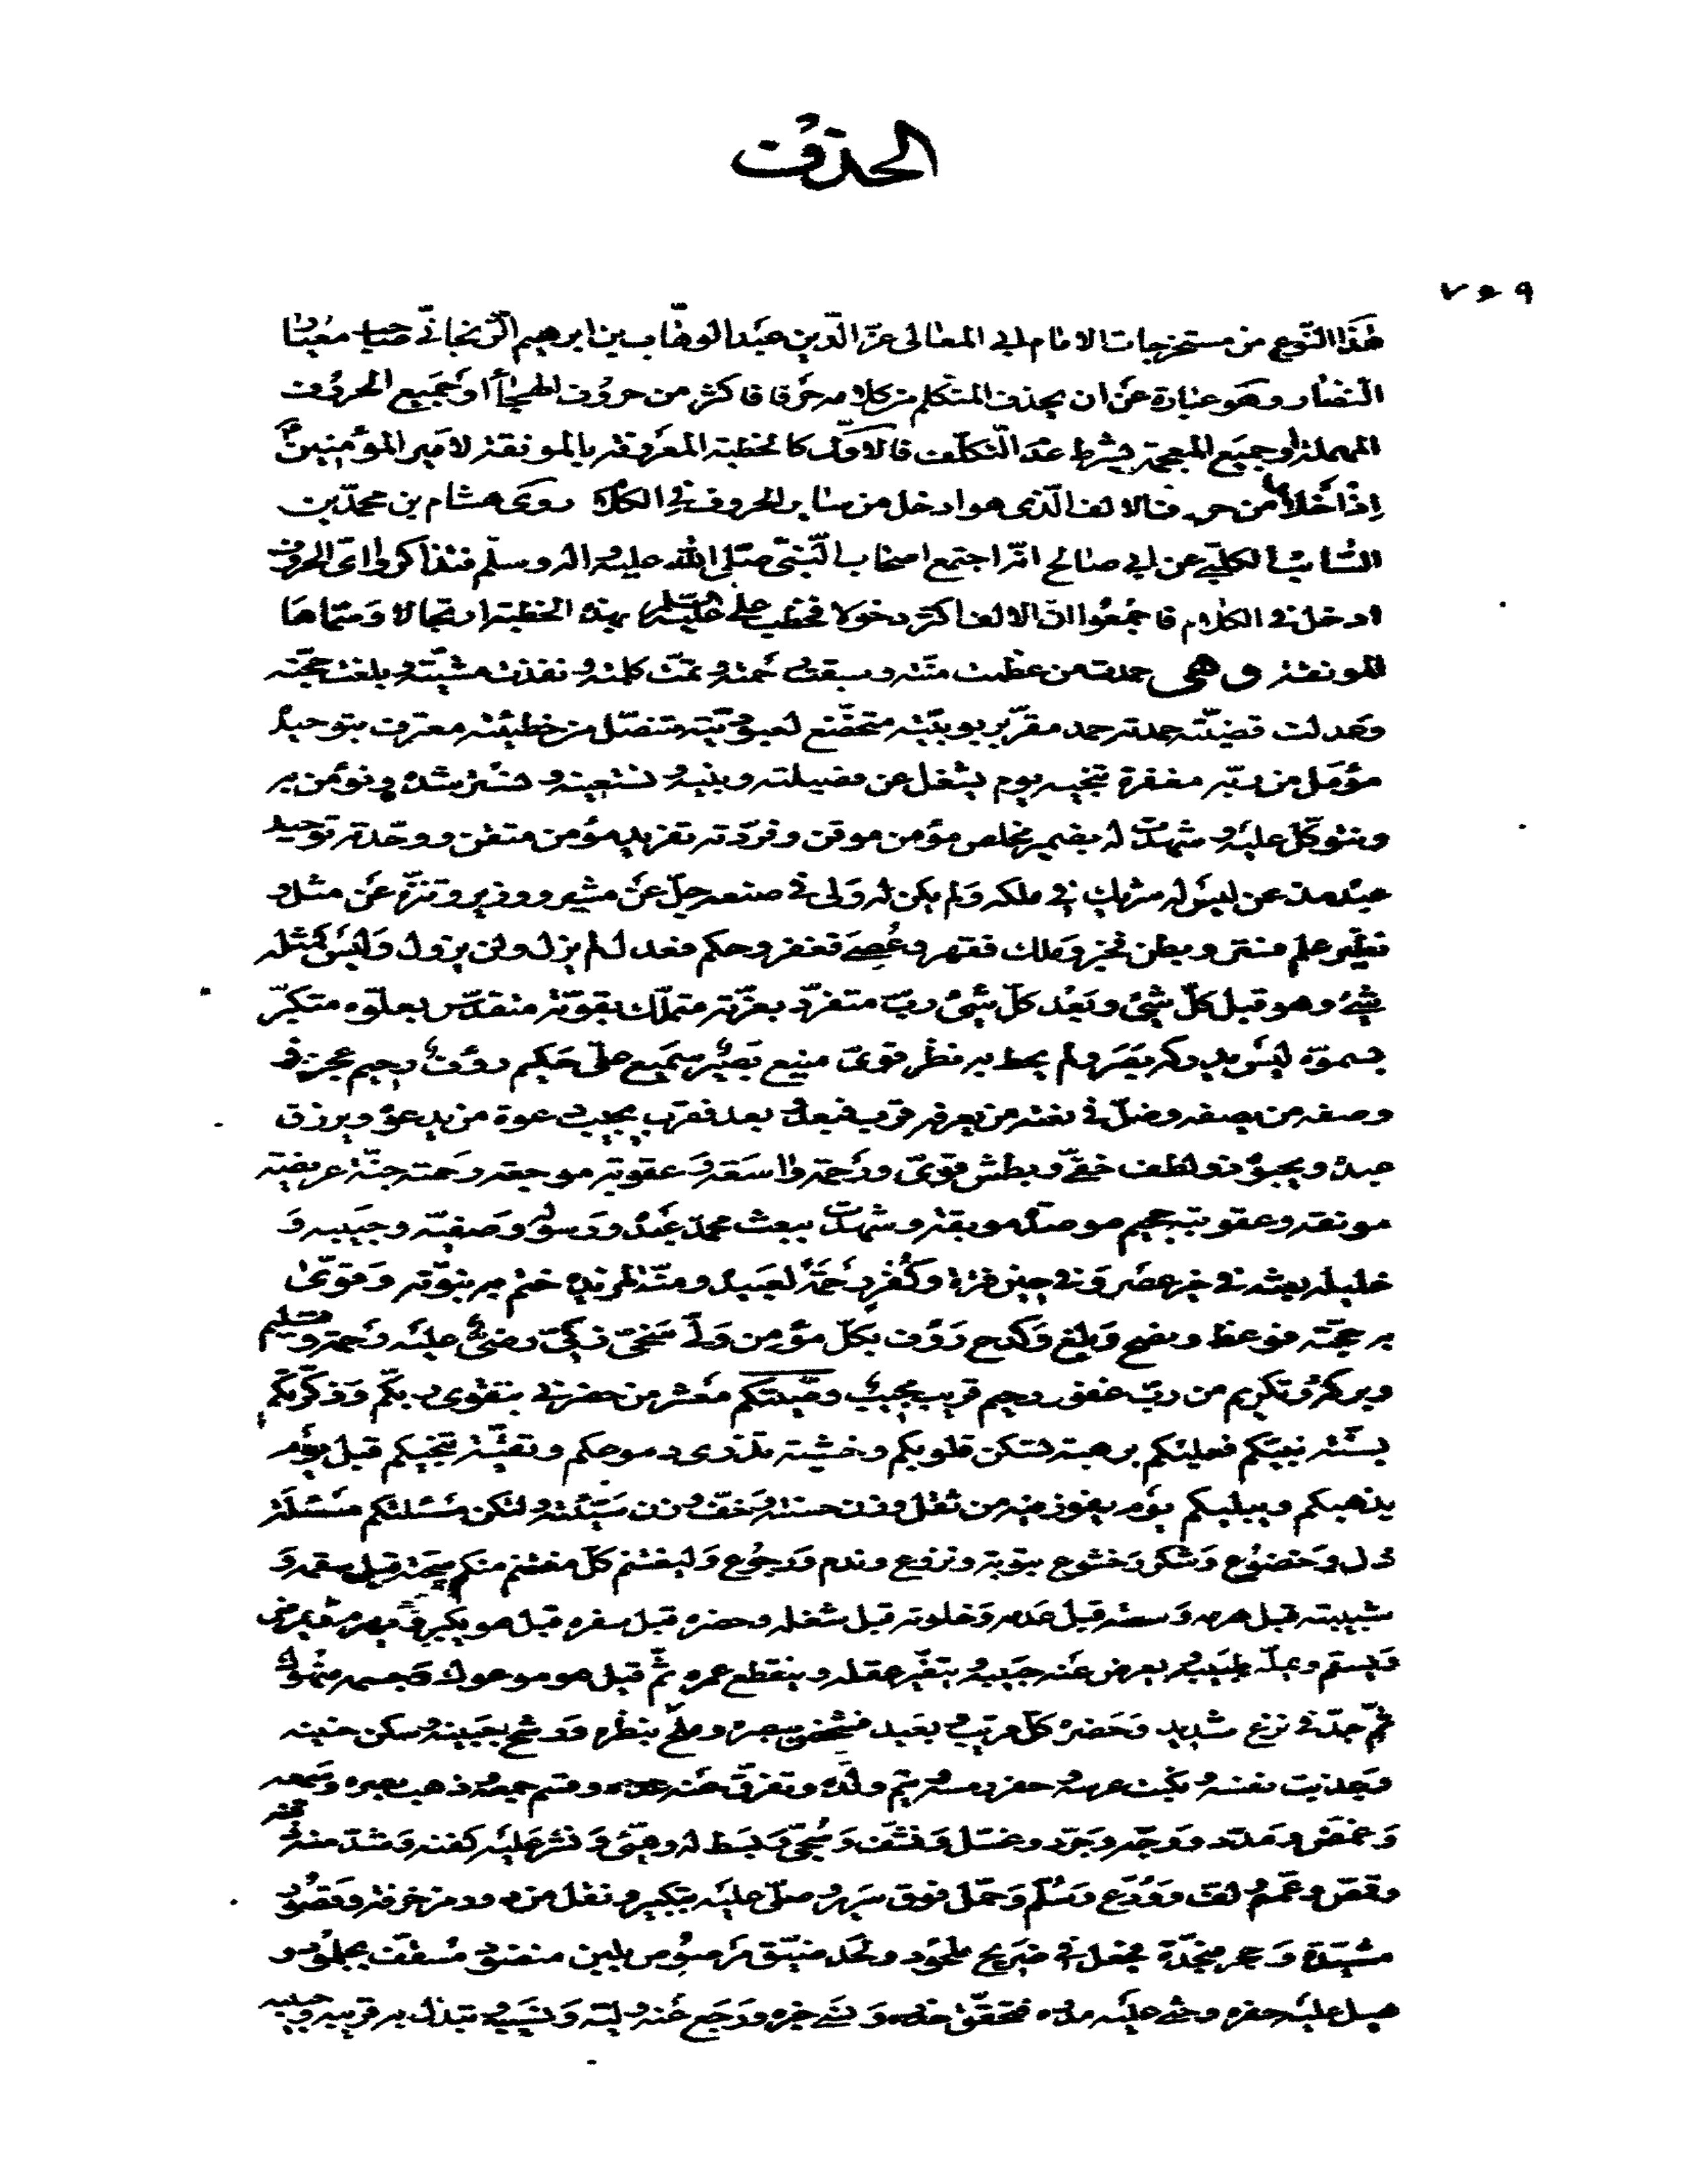 الحذف
٧٥٩
هذا النّوع من مستخرجات الامام ابي المعالى عزّ الدّين عبد الوهّاب بن ابرهيم الزّنجانّى صاحب معيار
النضار وهو عبارة عن ان يحذف المتكلم من كلامه حرفا فاكثر من حروف الهجاء او جميع الحروف
المهملة او جميع المعجمة بشرط عدم التّكلّف فالاوّل كالخطبة المعروفة بالمونقة لامير المؤمنين
اذ اخلاها من حرف الالف الّذى هو ادخل من ساير الحروف فى الكلام روى هشام بن محمّد بن
السّائب الكلبىّ عن ابى صالح انّه اجتمع اصحاب النّبىّ صلّى الله عليه واله وسلّم فتذاكروا اىّ الحروف
ادخل فى الكلام فاجمعوا انّ الالف اكثر دخولا فخطب علىّ عليه السّلام بهذه الخطبة ارتجالا وسمّاها
المونقة وهى حمدت من عظمت منّته وسبقت رحمته وتمّت كلمته ونفذت مشيّته وبلغت حجّته
وعدلت قضيّته حمدته حمد مقرّ بربوبيّته متخضّع لعبوديّته متنصّل من خطيئته معترف بتوحيده
مؤمّل من ربّه مغفرة تنجيه يوم يشغل عن فصيلته وبنيه ونستعينه ونسترشده ونؤمن به
ونتوكّل عليه وشهدت له بضمير مخلص مؤمن موقن وفرّدته تفريد مؤمن متقن ووحّدته توحيد
عبد مذعن ليس له شريك فى ملكه ولم يكن له ولى فى صنعه جلّ عن مشير ووزير وتنزّه عن مثل و
نظير علم فستر وبطن فخبر وملك فقهر وعُصِىَ فغفر وحكم فعدل لم يزل ولن يزول وليس كمثله
شىء وهو قبل كلّ شىء وبعد كلّ شىء ربّ متفرّد بعزّته متملّك بقوّته متقدّس بعلوّه متكبّر
بسموّه ليس يدركه بصر ولم يحط به نظر قوىّ منيع بصير سميع علىّ حكيم رؤف رحيم عجز فى
وصفه من يصفه وضلّ فى نعته من يعرفه قرب فبعد وبعد فقرب يجيب دعوة من يدعوه ويرزق
عبده ويحبوه ذو لطف خفىّ وبطش قوىّ ورحمة واسعة وعقوبة موجعة رحمته جنّة عريضة
مونقة وعقوبته جحيم موصدة موبقة وشهدت ببعث محمّد عبده ورسوله وصفيّه وحبيبه و
خليله بعثه فى خير عصر وفى حين فترة وكفر رحمة لعبيده ومنّة لمزيده ختم به نبوّته وقوّى
به حجّته فوعظ ونصح وبلّغ وكدح رؤف بكلّ مؤمن ولىّ سخىّ زكىّ رضىّ عليه رحمة وتسليم
وبركة وتكريم من ربّ غفور رحيم قريب مجيب وصّيتكم معشر من حضرنى بتقوى ربّكم وذكّرتكم
بسنّة نبيّكم فعليكم برهبة تسكن قلوبكم وخشية تذرى دموعكم وتقيّة تنجيكم قبل يوم
يذهبكم ويبليكم يوم يفوز فيه من ثقل وزن حسنته وخفّ وزن سيّئته ولتكن مسئلتكم مسئلة
ذل وخضوع وشكر وخشوع بتوبة ونزوع وندم ورجوع وليغتنم كلّ مغتنم منكم صحّته قبل سقمه و
شبيبته قبل هرمه وسعته قبل عدمه وخلوته قبل شغله وحضره قبل سفره قبل هو يكبر ويهرم ويمرض
ويسقم ويملّه طبيبه ويعرض عنه حبيبه ويتغيّر عقله وينقطع عمره ثمّ قيل هو موعوك وجسمه منهوك
ثمّ جدّ فى نزع شديد وحضره كلّ قريب وبعيد فشخص ببصره وطمح بنظره ورشح جبينه وسكن حنينه
وجذبت نفسه ونكبت عرسه وحفر رمسه ويتم ولده وتفرّق عنه عدده وقسم جمعه وذهب بصره وسمعه
وغمّض ومدّد ووجّه وجرّد وغسّل ونشّف وسُجّى وبسط له وهيّئ ونشر عليه كفنه وشدّ منه ذقنه
وقمّص وعمّم ولفّ وودّع وسُلّم وحمّل فوق سرير وصلّى عليه بتكبير ونقل من دور مزخرفة وقصور
مشيّدة وحجر منجّدة فجعل فى ضريح ملحود ولحد ضيّق مرصوص بلبن منضود مسقّف بجلمود و
هيل عليه حفره وحثى عليه مدره فتحقّق حذره ونسى خبره ورجع عنه وليّه ونسيبه وتبدّل به قريبه وحبيبه